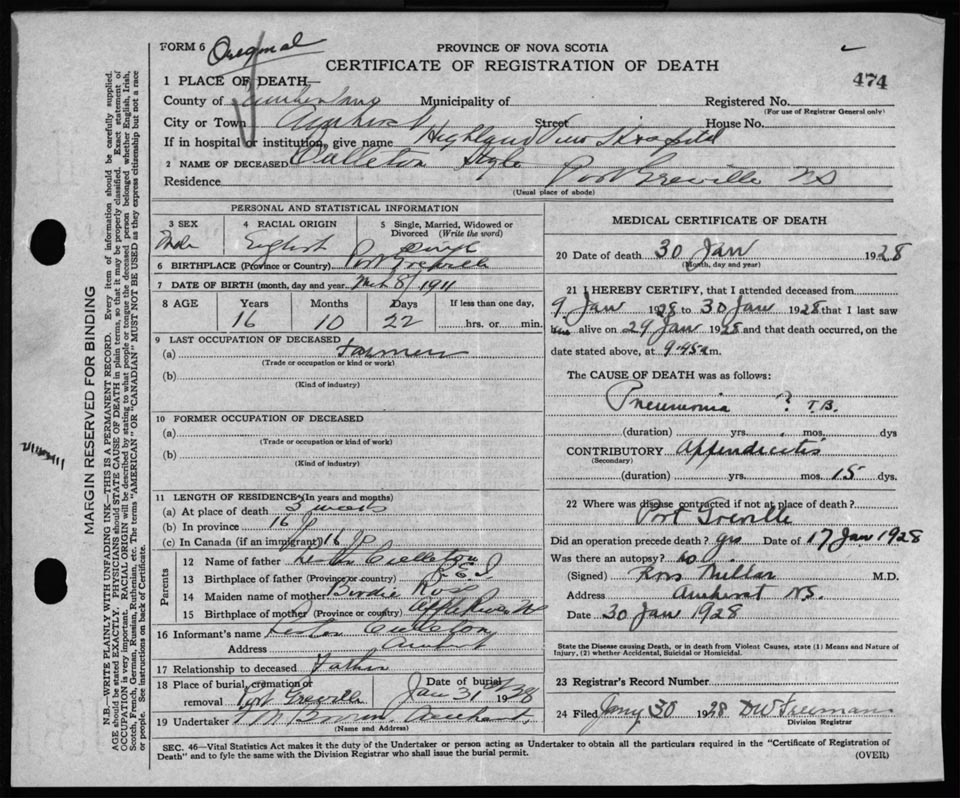 FORM 6 Original
PROVINCE OF NOVA SCOTIA
CERTIFICATE OF REGISTRATION OF DEATH
474
1 PLACE OF DEATH—
County of Cumberland Municipality of Registered No.
(For use of Registrar General only)
City or Town Amherst Street House No.
If in hospital or institution, give name Highland View Hospital
2 NAME OF DECEASED Culleton
Residence Port Greville NS
(Usual place of abode)
PERSONAL AND STATISTICAL INFORMATION
3 SEX 4 RACIAL ORIGIN 5 Single, Married, Widowed or
Divorced (Write the word)
Male English Single
6 BIRTHPLACE (Province or Country) Port Greville
7 DATE OF BIRTH (month, day and year) Mch 8/1911
8 AGE Years Months Days If less than one day,
16 10 22 hrs. or min.
9 LAST OCCUPATION OF DECEASED
(a) Farmer
(Trade or occupation or kind or work)
(b)
(Kind of industry)
10 FORMER OCCUPATION OF DECEASED
(a)
(Trade or occupation or kind of work)
(b)
(Kind of industry)
11 LENGTH OF RESIDENCE (In years and months)
(a) At place of death 3 weeks
(b) In province 16
(c) In Canada (if an immigrant) 16
Parents
12 Name of father Culleton
13 Birthplace of father (Province or country) P.E.I
14 Maiden name of mother Birdie
15 Birthplace of mother (Province or country) Apple River NS
16 Informant's name Culleton
Address Amherst
17 Relationship to deceased Father
18 Place of burial, cremation or
removal Port Greville
Date of burial
Jan 31 1928
19 Undertaker Amherst
(Name and Address)
MEDICAL CERTIFICATE OF DEATH
20 Date of death 30 Jan 1928
(Month, day and year)
21 I HEREBY CERTIFY, that I attended deceased from
9 Jan 1928 to 30 Jan 1928 that I last saw
him alive on 29 Jan 1928 and that death occurred, on the
date stated above, at 9.45 a m.
The CAUSE OF DEATH was as follows:
Pneumonia ? T.B.
(duration) yrs. mos. dys
CONTRIBUTORY Appendicitis
(Secondary)
(duration) yrs. mos. 15 dys.
22 Where was disease contracted if not at place of death?
Port Greville
Did an operation precede death? yes Date of 17 Jan 1928
Was there an autopsy? no
(Signed) Ross Millar M.D.
Address Amherst NS.
Date 30 Jan 1928
State the Disease causing Death, or in death from Violent Causes, state (1) Means and Nature of
Injury, (2) whether Accidental, Suicidal or Homicidal.
23 Registrar's Record Number
24 Filed Jany 30 1928 D W Freeman
Division Registrar
SEC. 46—Vital Statistics Act makes it the duty of the Undertaker or person acting as Undertaker to obtain all the particulars required in the "Certificate of Registration of
Death" and to fyle the same with the Division Registrar who shall issue the burial permit. (OVER)
MARGIN RESERVED FOR BINDING
N.B.—WRITE PLAINLY WITH UNFADING INK—THIS IS A PERMANENT RECORD. Every item of information should be carefully supplied.
AGE should be stated EXACTLY. PHYSICIANS should STATE CAUSE OF DEATH in plain terms, so that it may be properly classified. Exact statement of
OCCUPATION is very important. RACIAL ORIGIN will be described by stating to what people or tongue the deceased person belonged whether English, Irish,
Scotch, French, German, Russian, Ruthenian, etc. The terms "AMERICAN" OR "CANADIAN" MUST NOT BE USED as they express citizenship but not a race
or people. See instructions on back of Certificate.